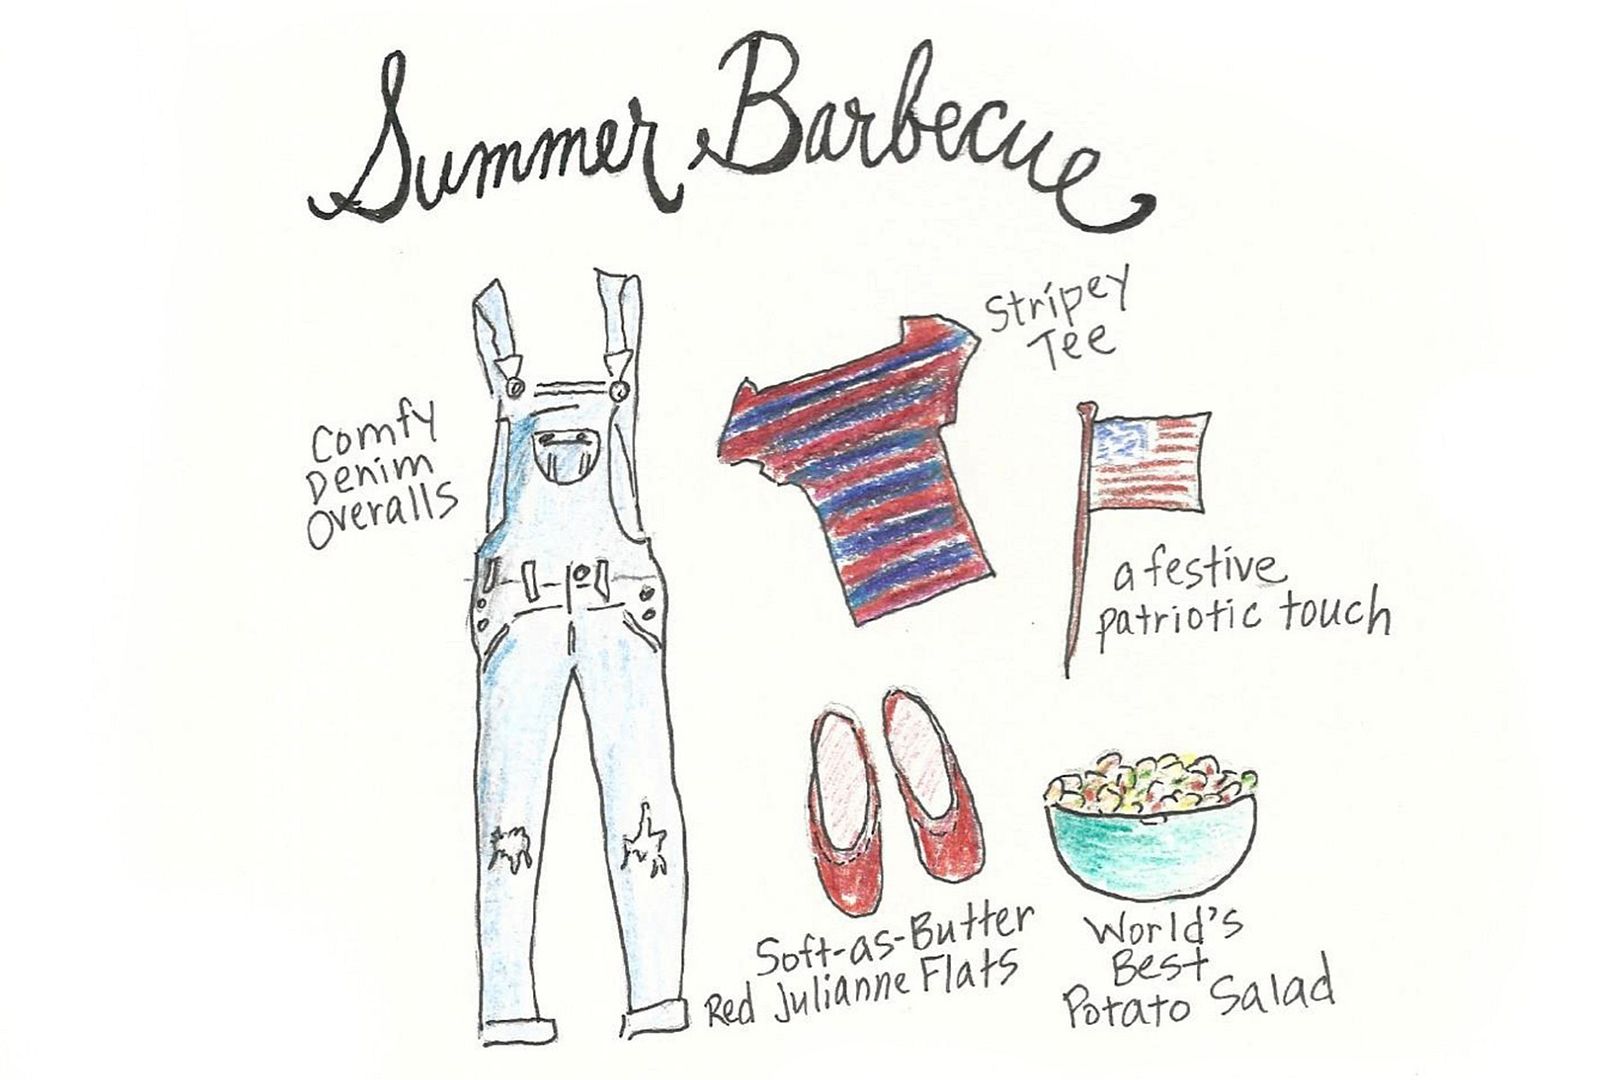 Summer Barbecue
Stripey
Tee
Comfy
Denim
Overalls
a festive
patriotic touch
Soft-as-Butter
Red Julianne Flats
World's
Best
Potato Salad